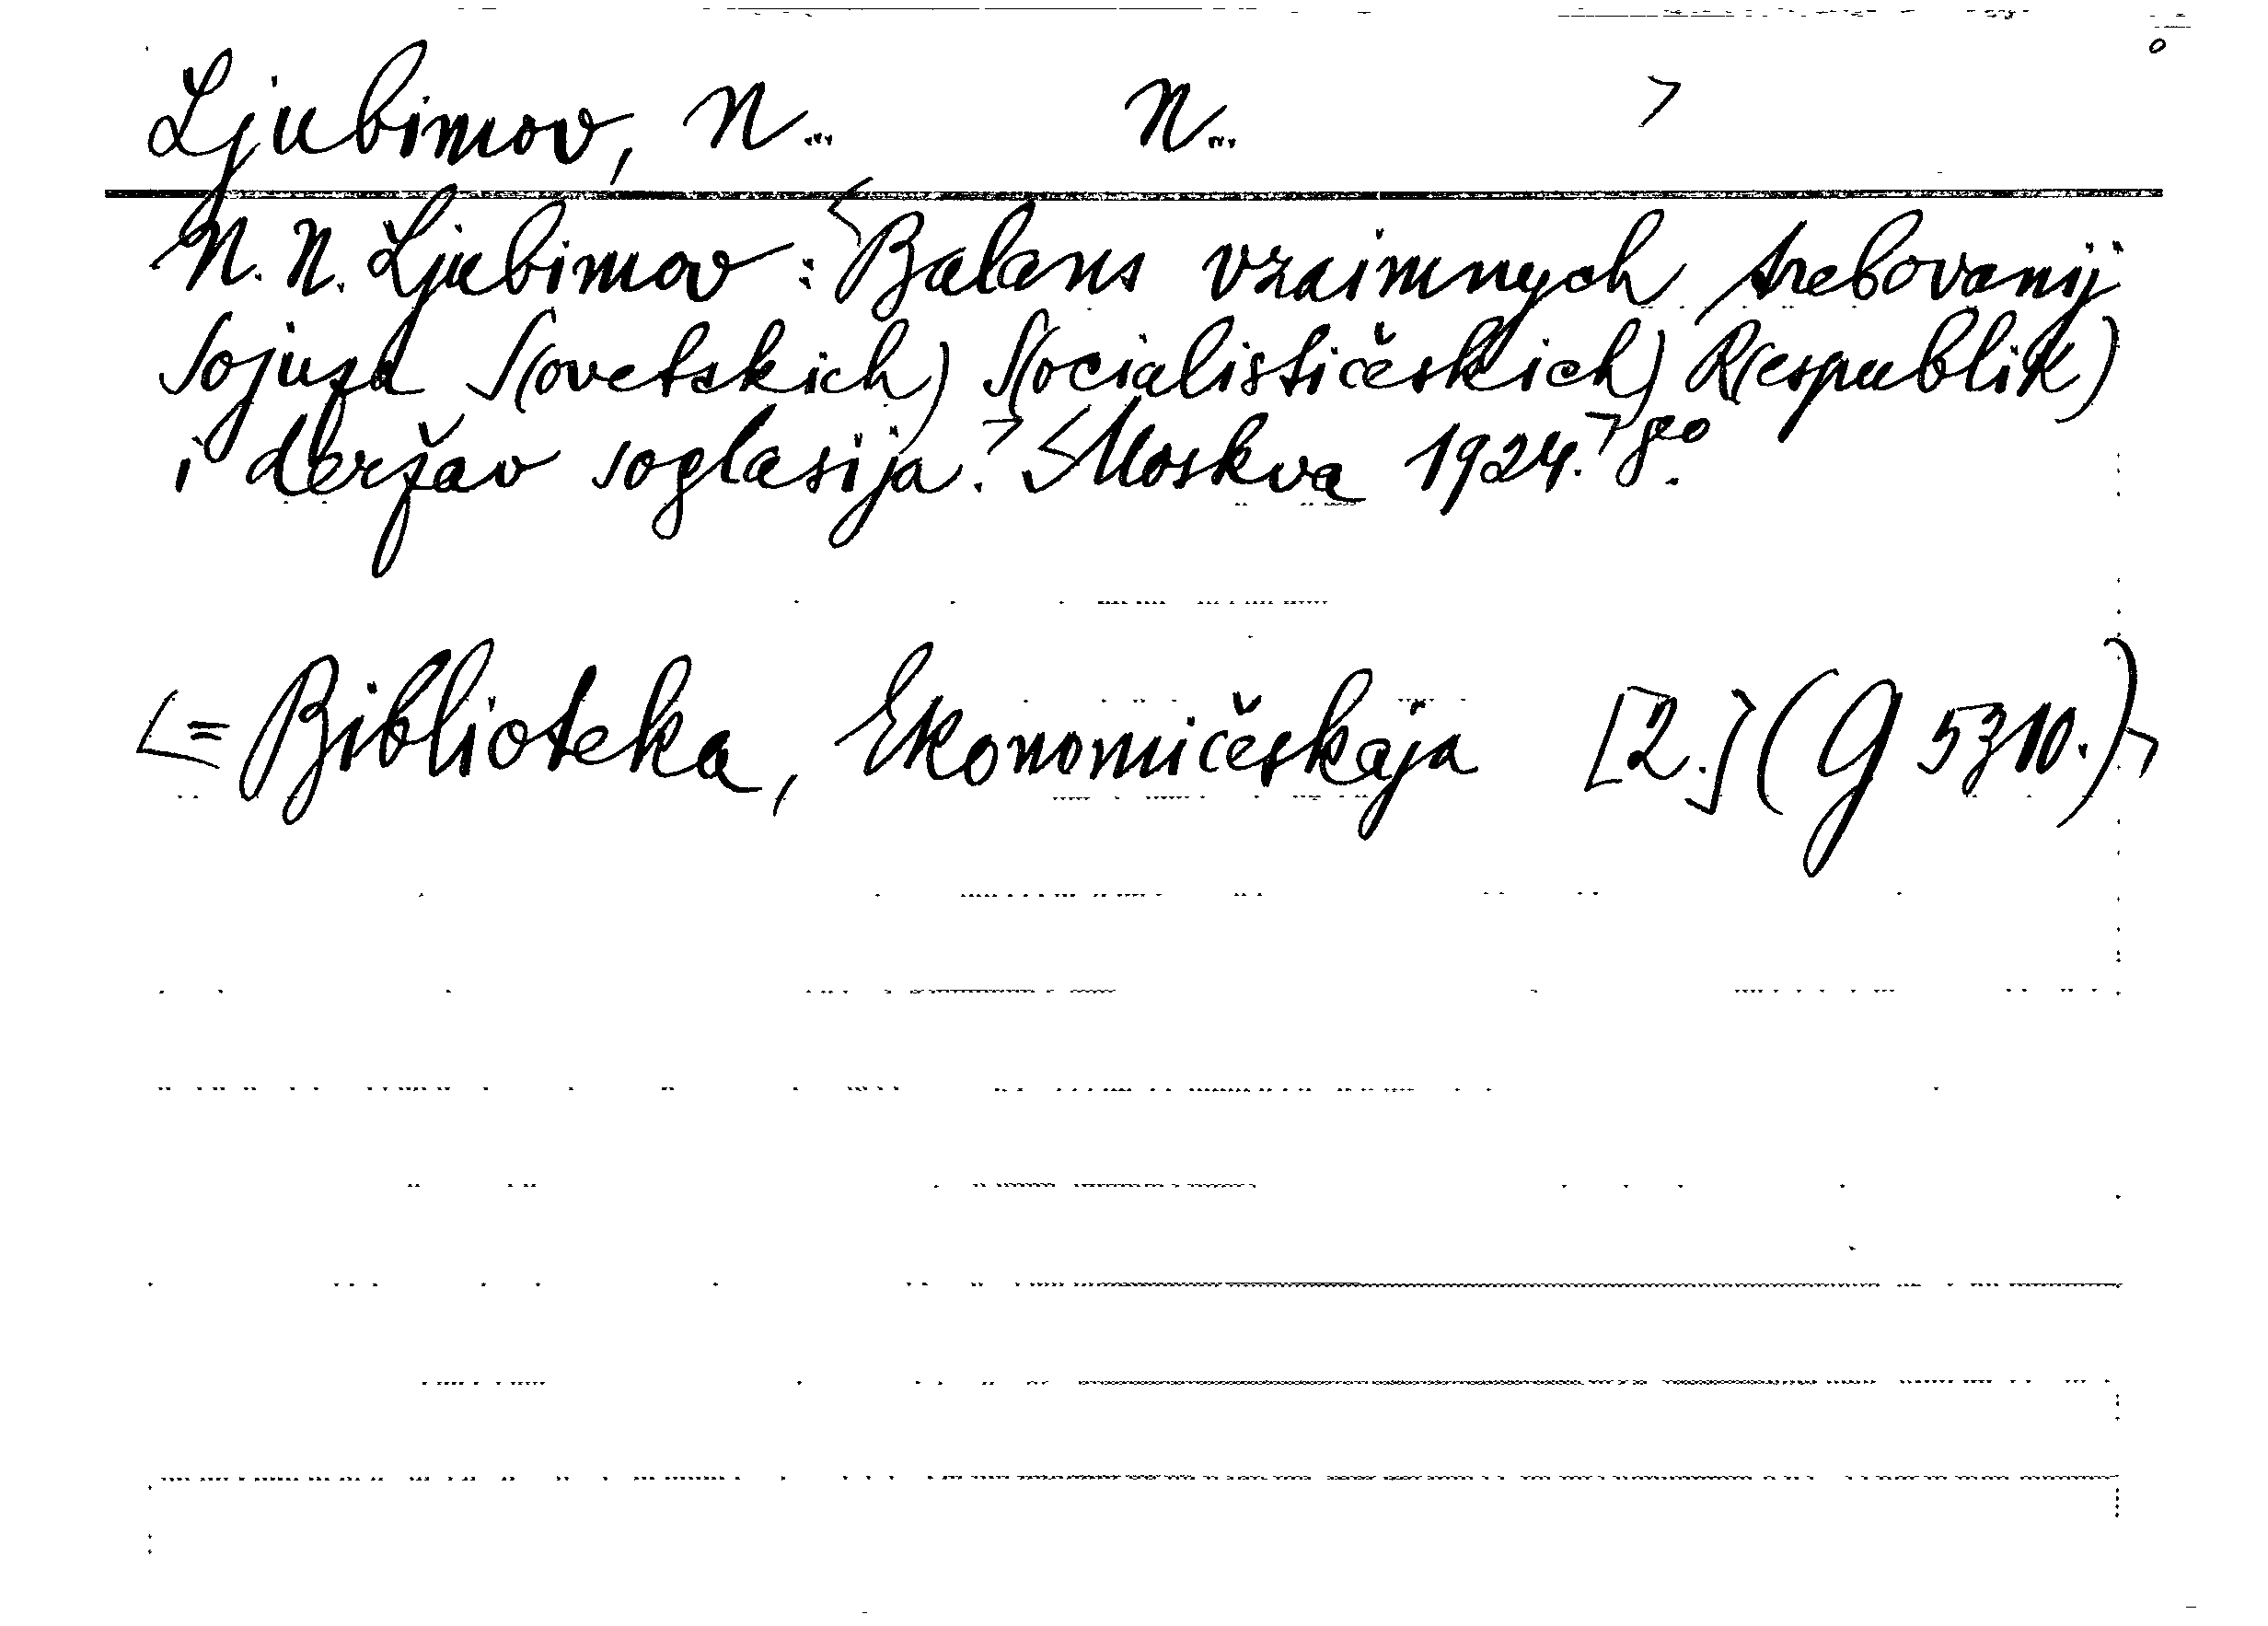 Ljubimov, N... N...
N. N. Ljubimov: Balans vzaimnych trebovanij
Sojuza S(ovetskich) S(ocialističeskich) R(espublik)
i deržav soglasija. Moskva 1924. 8°.
= Biblioteka, Ekonomičeskaja [2.] (G 5310.)